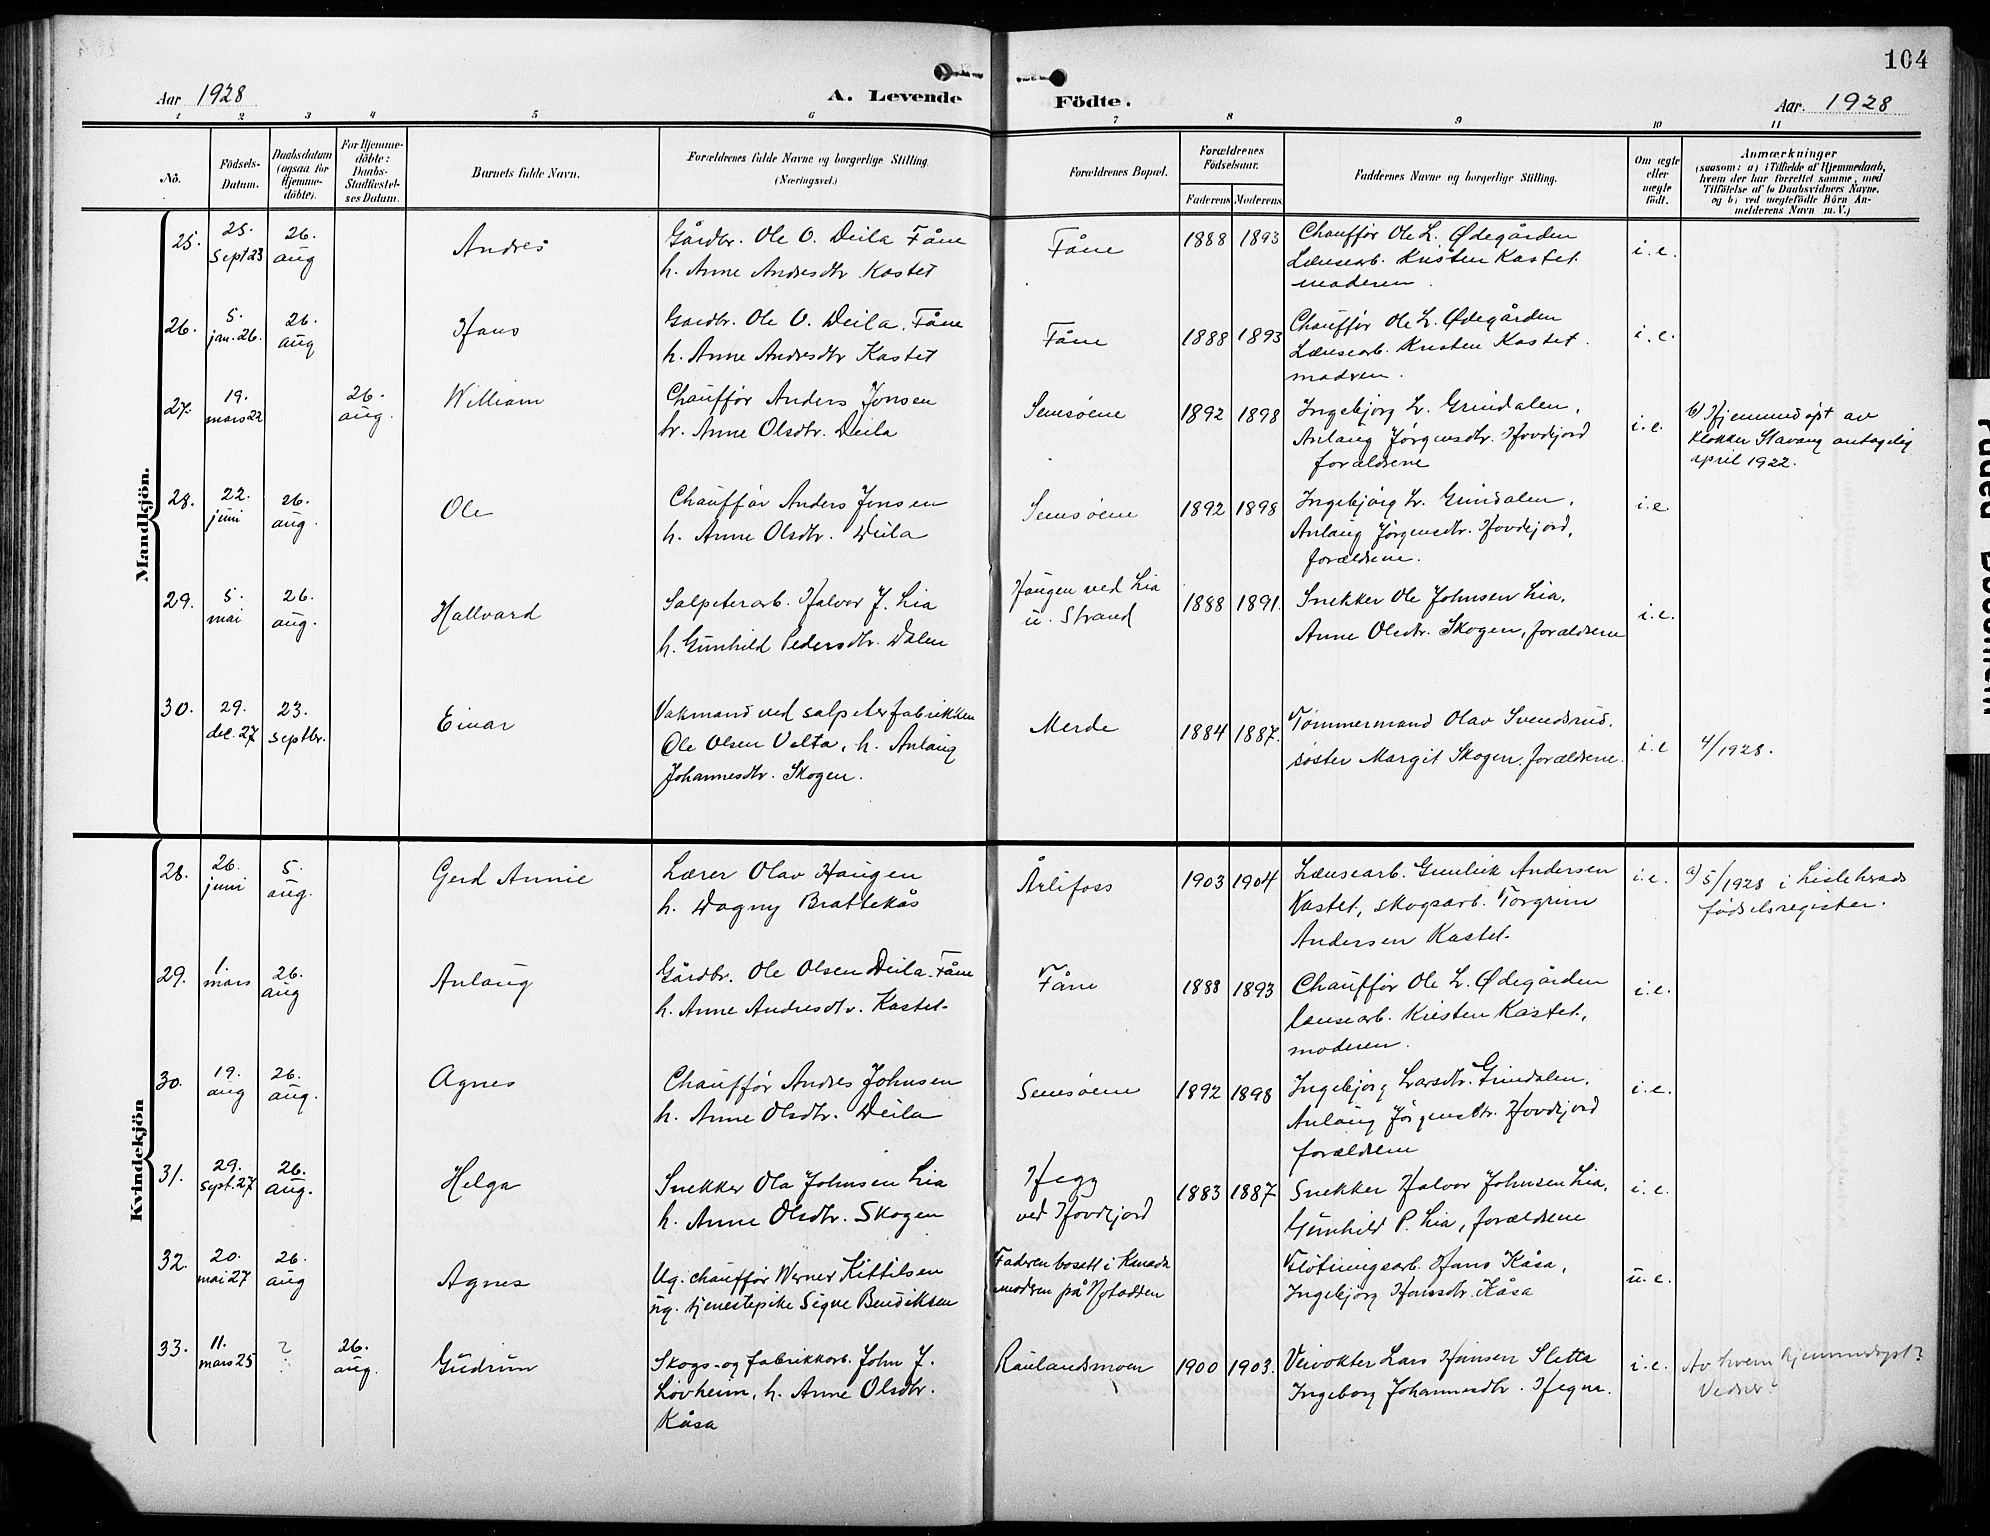 104
Aar 1928
A. Levende Födte.
Aar. 1928
1 2 3 4 5 6 7 8 9 10 11
Nö.
Födsels-Datum.
Daabsdatum (ogsaa for Hjemme-döbte).
For Hjemme-döbte: Daabs-Stadfæstel-ses Datum.
Barnets fulde Navn.
Forældrenes fulde Navne og borgerlige Stilling. (Næringsvei.)
Forældrenes Bopæl.
Forældrenes Födselsaar.
Faderens Moderens
Faddernes Navne og borgerlige Stilling.
Om ægte eller uægte födt.
Anmærkninger
(saasom: a) i Tilfælde af Hjemmedaab,
hvem der har forrettet samme, med
Tilföielse af to Daabsvidners Navne.
og b) ved uægtefödte Börn An-
melderens Navn m.V.)
Mandkjön.
25. 25. Sept 23 26. aug Andres
Gårdbr. Ole O. Deila Fåne
h. Anne Andresdtr Kastet
Fåne 1888 1893
Chauffør Ole L. Ødegården
Lænsearb. Kristen Kastet
moderen.
i.e.
26. 5. jan. 26. 26. aug Hans
Gardbr. Ole O. Deila. Fåne
h. Anne Andresdtr Kastet
Fåne 1888 1893
Chauffør Ole L. Ødegården
Lænsearb. Kristen Kastet.
modren.
i.e.
27. 19. mars 22 26. aug. William
Chauffør Anders Jonsen
h. Anne Olsdtr. Deila
Semsøene 1892 1898
Ingebjorg L. Grindalen,
Anlaug Jørgensdtr. Hovdejord
foraldrene
i.e.
b) Hjemmedøpt av
klokker Stavang antagelig
april 1922.
28. 22. juni 26. aug. Ole
Chauffør Anders Jonsen
h. Anne Olsdtr. Deila
Semsøene 1892 1898
Ingebjörg L. Grindalen,
Anlaug Jørgensdtr. Hovdejord,
forældrene.
i.e
29. 5. mai 26. aug. Hallvard
Salpeterarb. Halvor J. Lia
h. Gunhild Pedersdtr. Dalen
Haugen ved Lia
u. Strand
1888 1891.
Snekker Ole Johnsen Lia,
Anne Olsdtr. Skogen, foraldrene
i.e.
30. 29. dec. 27 23. septbr. Einar
Vakmand ved salpeterfabrikken
Ole Olsen Velta, h. Anlaug
Johannesdtr. Skogen.
Merde 1884 1887.
Tømmermand Olav Svendsrud,
søster Margit Skogen, forældrene.
i.e 4/1928.
Kvindekjön
28. 26. juni 5. aug. Gerd Annie
Lærer Olav Haugen
h. Dagny Brattekås
Årlifoss 1903 1904
Lænsearb. Gunleik Andersen
Kastet, skogsarb. Torgrim
Andersen Kastet.
i.e.
a) 5/1928 i Lisleherads
fødselsregister.
29. 1. mars 26. aug Anlaug
Gårdbr. Ole Olsen Deila. Fåne
h. Anne Andresdtr. Kastet.
Fåne 1888 1893
Chauffør Ole L. Ødegården
lænsearb. Kristen Kastet,
moderen.
i.e.
30. 19. aug 26. aug. Agnes
Chauffør Andres Johnsen
h. Anne Olsdtr. Deila
Semsøene 1892 1898
Ingebjorg Larsdtr. Grindalen,
Anlaug Jørgensdtr. Hovdejord
forældrene
i.e.
31. 29. sept. 27 26. aug. Helga
Snekker Ola Johnsen Lia
h. Anne Olsdtr. Skogen
Hegg
ved Hovdejord
1883 1887
Snekker Halvor Johnsen Lia,
Gunhild P. Lia, forældrene
i.e.
32. 20. mai 27 26. aug Agnes
Ug. chauffør Werner Kittilsen
ug. tjenestepike Signe Bendiksen
Faderen bosatt i Kanada
modren på Notodden
Fløtningsarb. Hans Kåsa,
Ingebjørg Hansdtr. Kåsa
u.e.
33. 11. mars 25 ? 26. aug. Gudrun
Skogs- og fabrikkarb. John J.
Lovheim, h. Anne Olsdtr.
Kåsa
Raulandsmoen 1900 1903.
Veivokter Lars Hansen Sletta
Ingeborg Johannesdtr. Hegna.
i.e.
Av hvem hjemmedøpt?